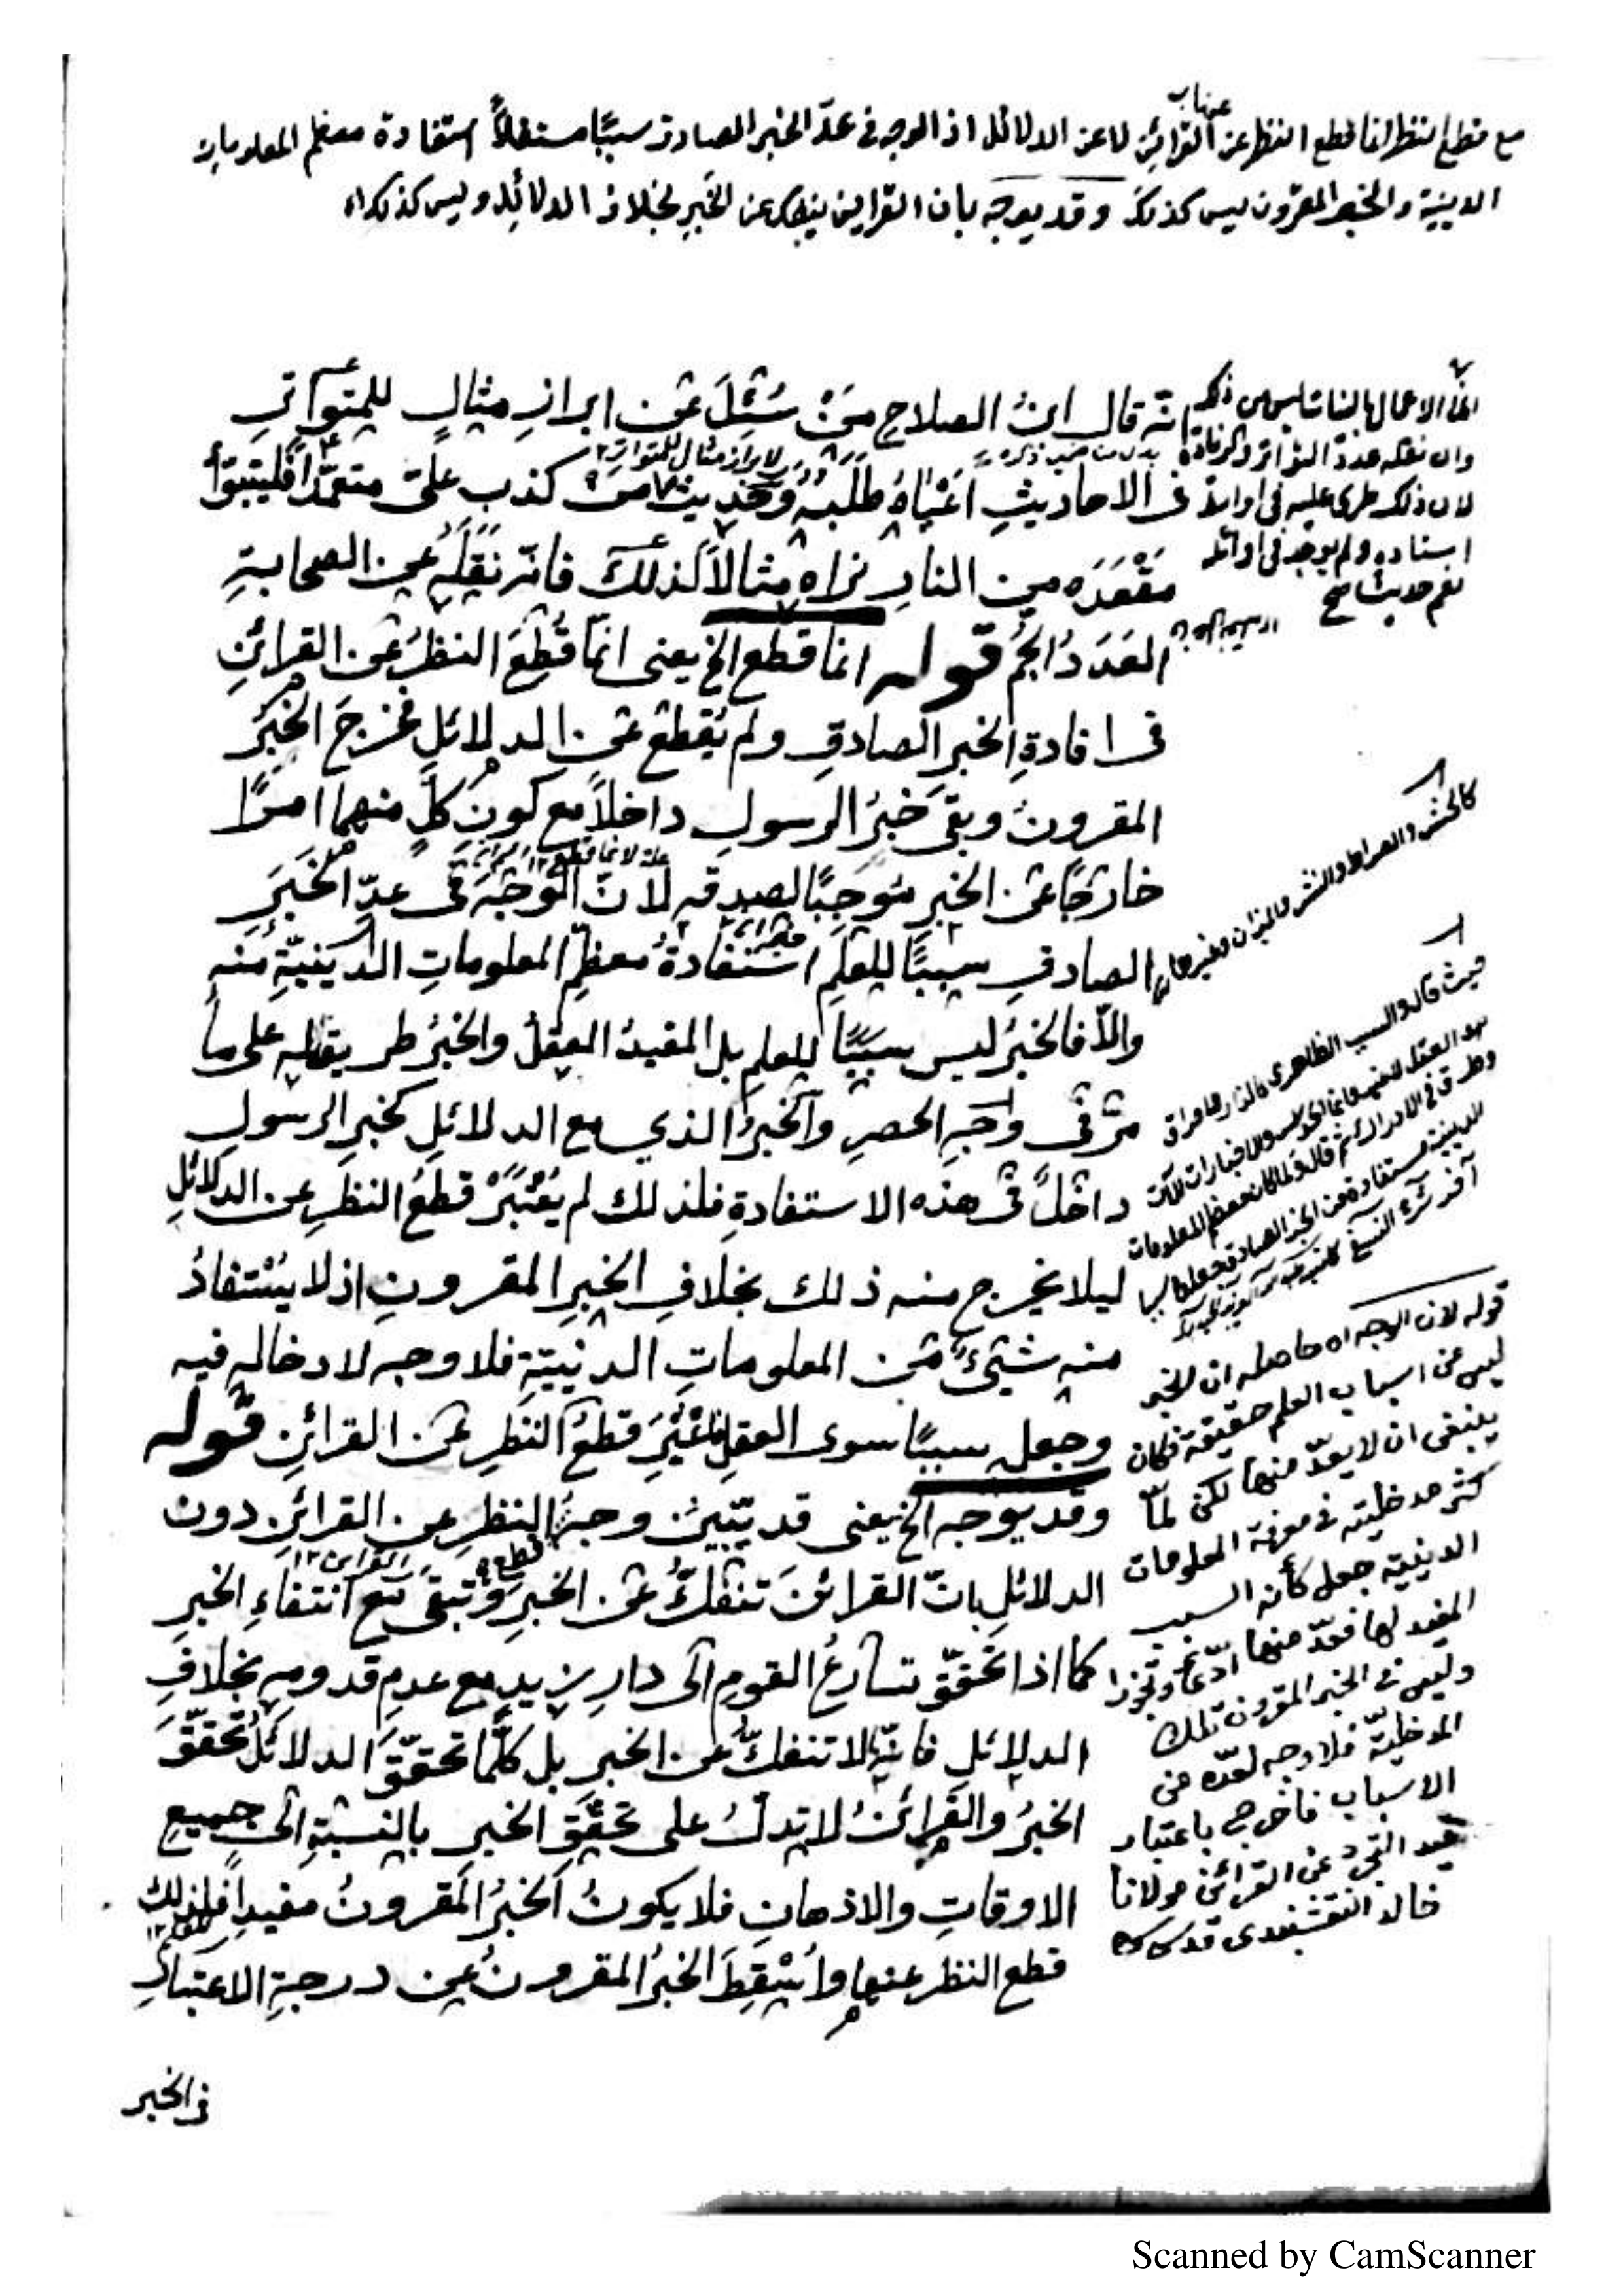 مع قطع النظر انما قطع النظر عن القرائن لا عن الدلائل اذ الوجه فى عدّ الخبر الصادق سببًا مستقلاً استفادة معظم المعلومات
الدينية والخبر المقرون ليس كذلك وقد يوجه بان القراين ينفك عن الخبر بخلاف الدلائل وليس كذلك اه
انه قال ابنُ الصلاح مَنْ سُئِلَ عن ابرازِ مثالٍ للمتواتر
لابراز مثال للمتواتر
فى الاحاديثِ اَعْيَاهُ طَلَبُهُ وحديث من كذب علىّ متعمّدًا فليتبوّأ
مَقْعَدَه من النارِ نراه مثالاً لذلك فانّه نقله عن الصحابةِ
العَدَدُ الجمُّ قوله انما قطع الخ يعنى انما قُطِعَ النظرُ عن القرائنِ
فى افادةِ الخبرِ الصادقِ ولم يُقطع عن الدلائلِ فخرجَ الخبرُ
المقرونُ وبقى خبرُ الرسولِ داخلاً مع كونِ كلٍّ منهما امرًا
علة لانما قطع ١٢
خارجًا عن الخبرِ مُوجِبًا لصدقه لانّ الوَجْهَ فى عدِّ الخَبَرِ
الصادقِ سببًا للعلم استفادةُ معظم المعلوماتِ الدينيّةِ منه
والاّ فالخبرُ ليس سببًا للعلم بل المفيدُ العقلُ والخبرُ طريق له على ما
مرّ فى وجهِ الحصرِ والخبرُ الذي مع الدلائلِ كخبرِ الرسولِ
داخلٌ فى هذه الاستفادةِ فلذلك لم يُعْتَبَرْ قطعُ النظرِ عن الدلائلِ
ليلا يخرج منه ذلك بخلافِ الخبرِ المقرونِ اذ لا يُسْتفادُ
منه شيئٌ من المعلوماتِ الدينيّة فلا وجه لادخاله فيه
وجعلِه سببًا سوى العقلِ قطعُ النظرِ عن القرائنِ قوله
وقد يوجه الخ يعنى قد يبّينُ وجهُ النظرِ عن القرائنِ دون
قطع
القراين ١٢
الدلائلِ بانّ القرائنَ تنفكُّ عن الخبرِ وتبقى مع انتفاءِ الخبرِ
كما اذا تحقّق تسارعُ القومِ الى دارِ زيدٍ مع عدمِ قدومِه بخلافِ
الدلائلِ فانّها لا تنفكُّ عن الخبرِ بل كلّما تحقّقَ الدلائلُ تحقّقَ
الخبرُ والقرائنُ لا تدلُّ على تحقّقِ الخبرِ بالنسبةِ الى جميعِ
الاوقاتِ والاذهانِ فلا يكونُ الخبرُ المقرونُ مفيدًا فلذلك
للعلم ١٢
قطع النظر عنها واُسْقِطَ الخبرُ المقرونُ عن درجةِ الاعتبارِ
فى الخبر
لان ذلك طرى عليه فى
اسناده ولم يوجد فى اوائله
نعم حديث
كالحشر والصراط والنشر والميزان وغيرها
حيث قال والسبب الظاهرى كالنار
قوله لان الوجه اه حاصله ان للخبر
ليس من اسباب العلم حقيقة فكان
ينبغى ان لا يعدّ منها لكن لمّا
كثر مدخليته فى معرفة المعلومات
الدينية جعل كأنه السبب
المفيد لها فعدّ منها ادّعاء وتجوزا
وليس فى الخبر المقرون تلك
المدخليّة فلا وجه لعدّه من
الاسباب فاخرج باعتبار
قيد التجرد عن القرائن مولانا
خالد النقشبندى قدس سره
Scanned by CamScanner